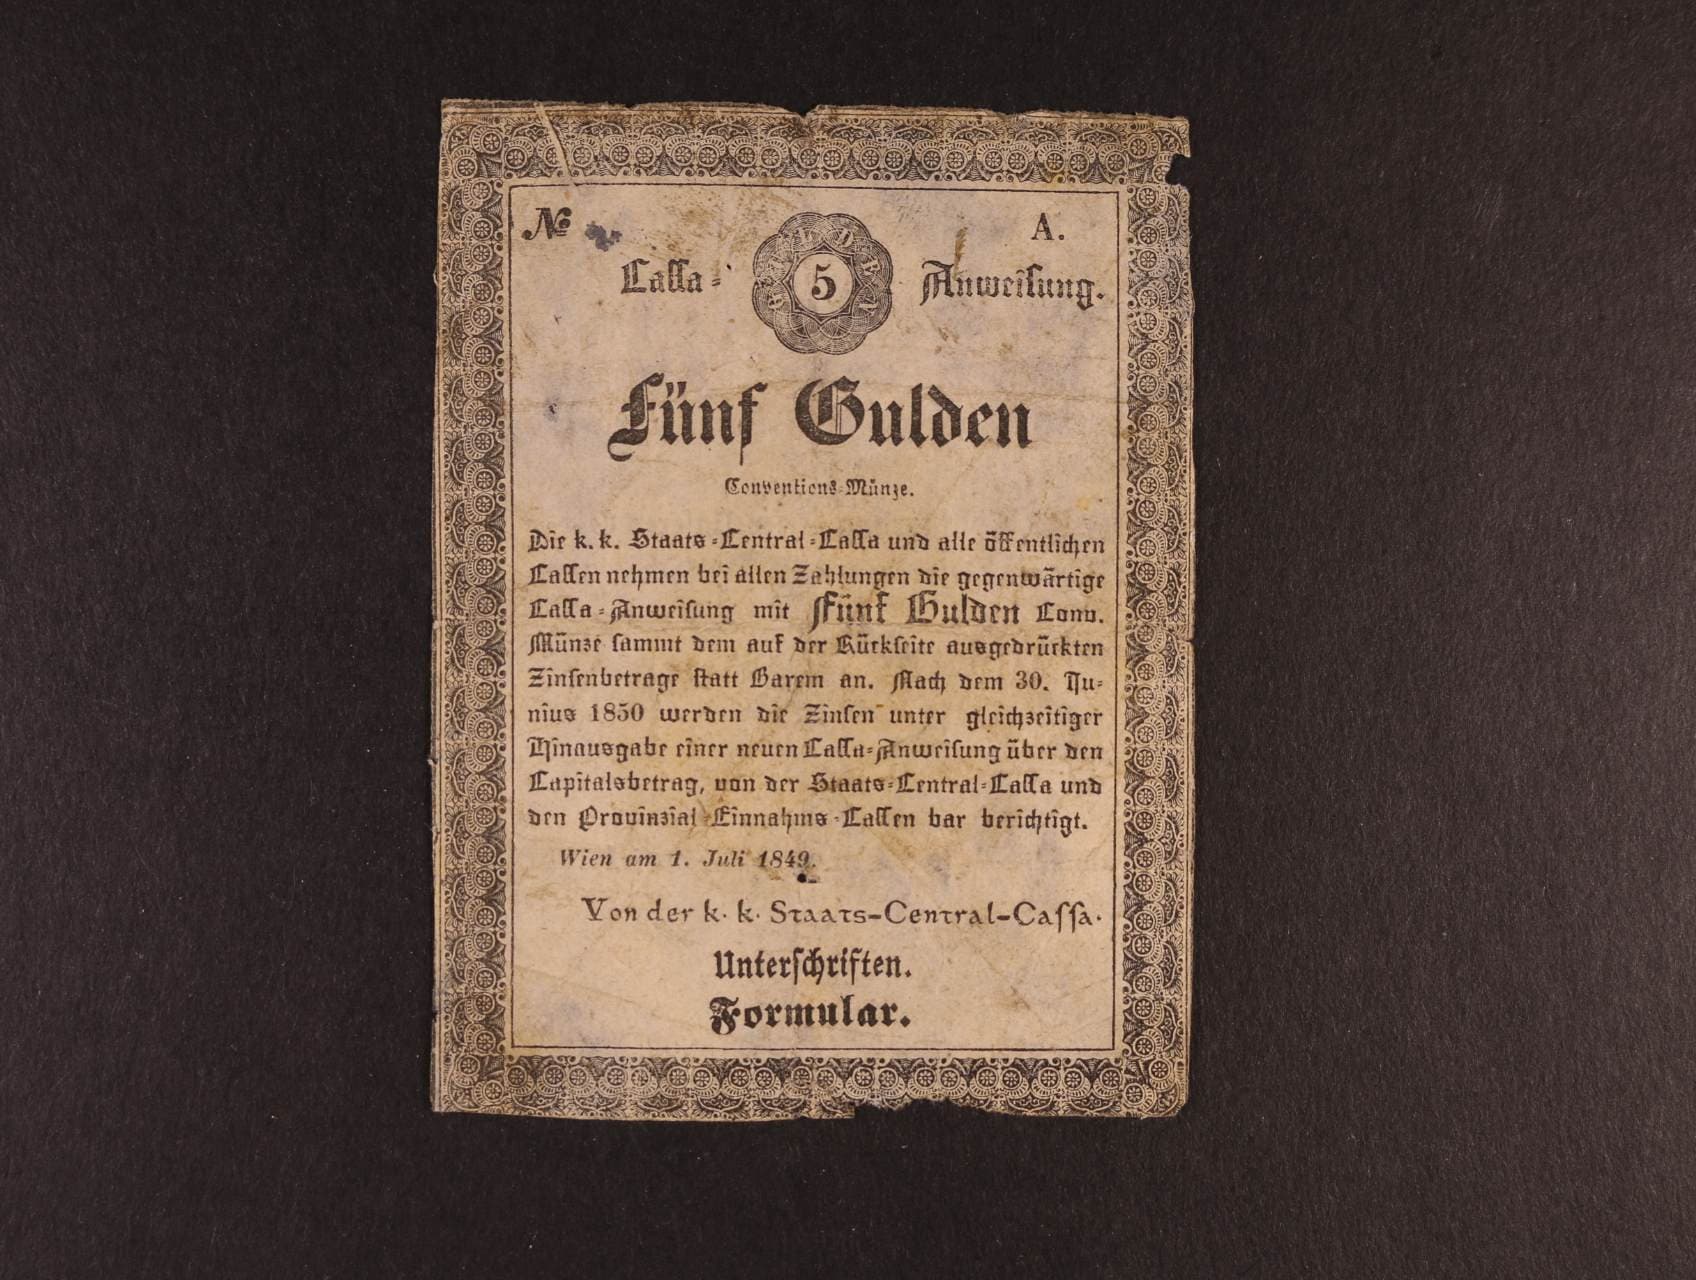 № A.
Cassa- GULDEN 5 Anweisung.
Fünf Gulden
Conventions-Münze.
Die k. k. Staats-Central-Cassa und alle öffentlichen
Cassen nehmen bei allen Zahlungen die gegenwärtige
Cassa-Anweisung mit Fünf Gulden Conv.
Münze sammt dem auf der Rückseite ausgedrückten
Zinsenbetrage statt Barem an. Nach dem 30. Ju-
nius 1850 werden die Zinsen unter gleichzeitiger
Hinausgabe einer neuen Cassa-Anweisung über den
Capitalsbetrag, von der Staats-Central-Cassa und
den Provinzial-Einnahms-Cassen bar berichtigt.
Wien am 1. Juli 1849.
Von der k. k. Staats-Central-Cassa.
Unterschriften.
Formular.